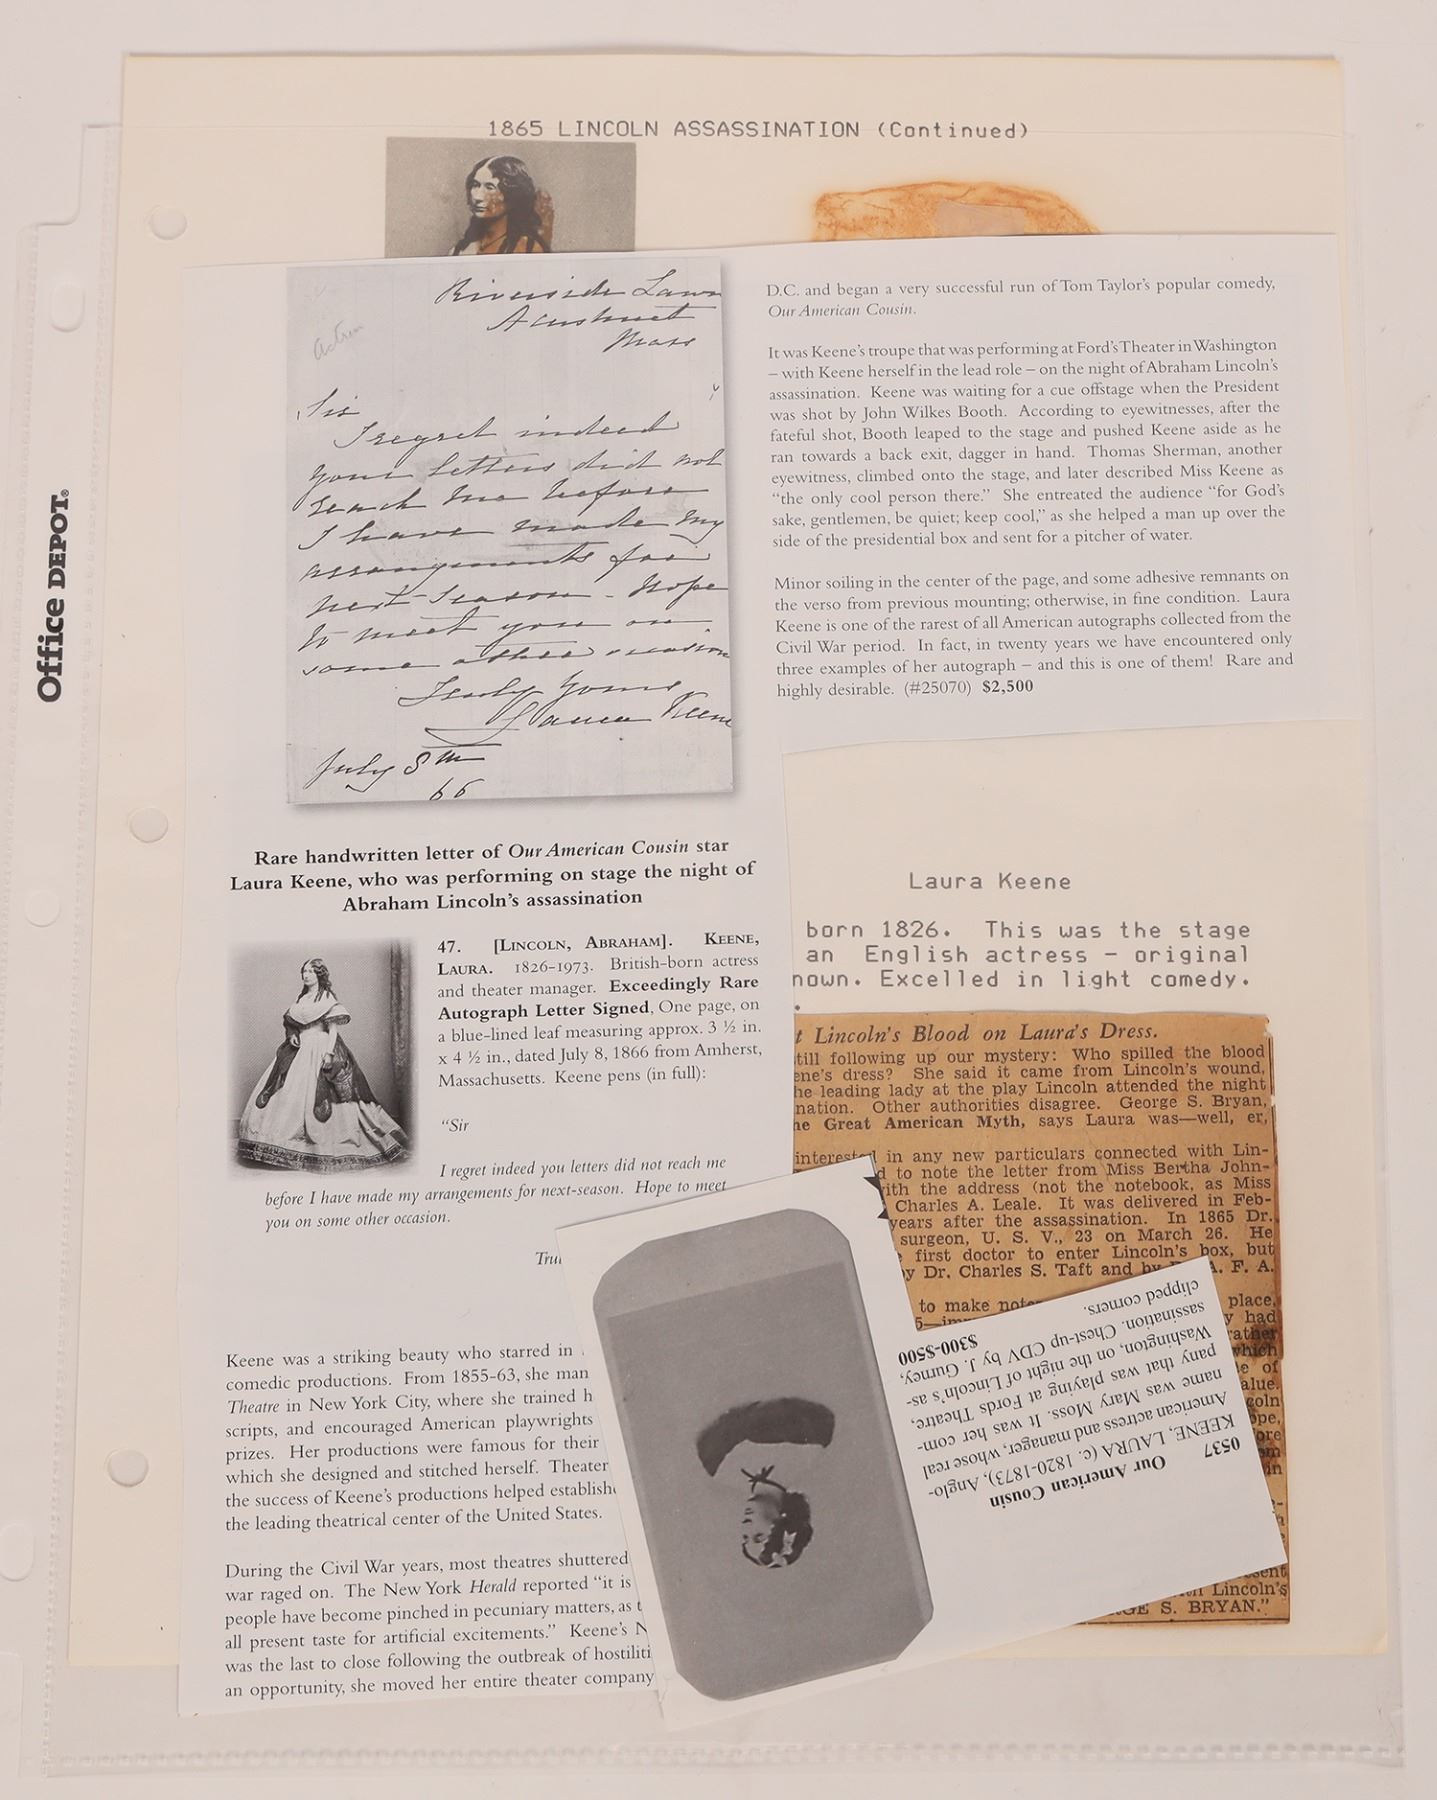 1865 LINCOLN ASSASSINATION (Continued)
Office DEPOT®
Actress
Riverside Lawn
Acushnet
Mass
Sir
I regret indeed
your letters did not
reach me before
I have made my
arrangements for
next-season - Hope
to meet you on
some other occasion
Truly Yours
Laura Keene
July 8th
66
Rare handwritten letter of Our American Cousin star
Laura Keene, who was performing on stage the night of
Abraham Lincoln's assassination
47. [LINCOLN, ABRAHAM]. KEENE,
LAURA. 1826-1973. British-born actress
and theater manager. Exceedingly Rare
Autograph Letter Signed, One page, on
a blue-lined leaf measuring approx. 3 ½ in.
x 4 ½ in., dated July 8, 1866 from Amherst,
Massachusetts. Keene pens (in full):
"Sir
I regret indeed you letters did not reach me
before I have made my arrangements for next-season. Hope to meet
you on some other occasion.
Tru
Keene was a striking beauty who starred in
comedic productions. From 1855-63, she man
Theatre in New York City, where she trained h
scripts, and encouraged American playwrights
prizes. Her productions were famous for their
which she designed and stitched herself. Theater
the success of Keene's productions helped establish
the leading theatrical center of the United States.
During the Civil War years, most theatres shuttered
war raged on. The New York Herald reported "it is
people have become pinched in pecuniary matters, as t
all present taste for artificial excitements." Keene's N
was the last to close following the outbreak of hostiliti
an opportunity, she moved her entire theater company
D.C. and began a very successful run of Tom Taylor's popular comedy,
Our American Cousin.
It was Keene's troupe that was performing at Ford's Theater in Washington
– with Keene herself in the lead role – on the night of Abraham Lincoln's
assassination. Keene was waiting for a cue offstage when the President
was shot by John Wilkes Booth. According to eyewitnesses, after the
fateful shot, Booth leaped to the stage and pushed Keene aside as he
ran towards a back exit, dagger in hand. Thomas Sherman, another
eyewitness, climbed onto the stage, and later described Miss Keene as
"the only cool person there." She entreated the audience "for God's
sake, gentlemen, be quiet; keep cool," as she helped a man up over the
side of the presidential box and sent for a pitcher of water.
Minor soiling in the center of the page, and some adhesive remnants on
the verso from previous mounting; otherwise, in fine condition. Laura
Keene is one of the rarest of all American autographs collected from the
Civil War period. In fact, in twenty years we have encountered only
three examples of her autograph – and this is one of them! Rare and
highly desirable. (#25070) $2,500
Laura Keene
born 1826. This was the stage
an English actress - original
nown. Excelled in light comedy.
t Lincoln's Blood on Laura's Dress.
till following up our mystery: Who spilled the blood
ene's dress? She said it came from Lincoln's wound,
he leading lady at the play Lincoln attended the night
nation. Other authorities disagree. George S. Bryan,
he Great American Myth, says Laura was—well, er,
interested in any new particulars connected with Lin-
d to note the letter from Miss Bertha John-
ith the address (not the notebook, as Miss
Charles A. Leale. It was delivered in Feb-
years after the assassination. In 1865 Dr.
surgeon, U. S. V., 23 on March 26. He
first doctor to enter Lincoln's box, but
y Dr. Charles S. Taft and by A. F. A.
to make note place,
y had
rather
which
e of
alue.
coln
ope,
ore
in
sent
Lincoln's
GE S. BRYAN."
0537
Our American Cousin
KEENE, LAURA (c. 1820-1873), Anglo-
American actress and manager, whose real
name was Mary Moss. It was her com-
pany that was playing at Fords Theatre,
Washington, on the night of Lincoln's as-
sassination. Chest-up CDV by J. Gurney,
clipped corners.
$300-$500